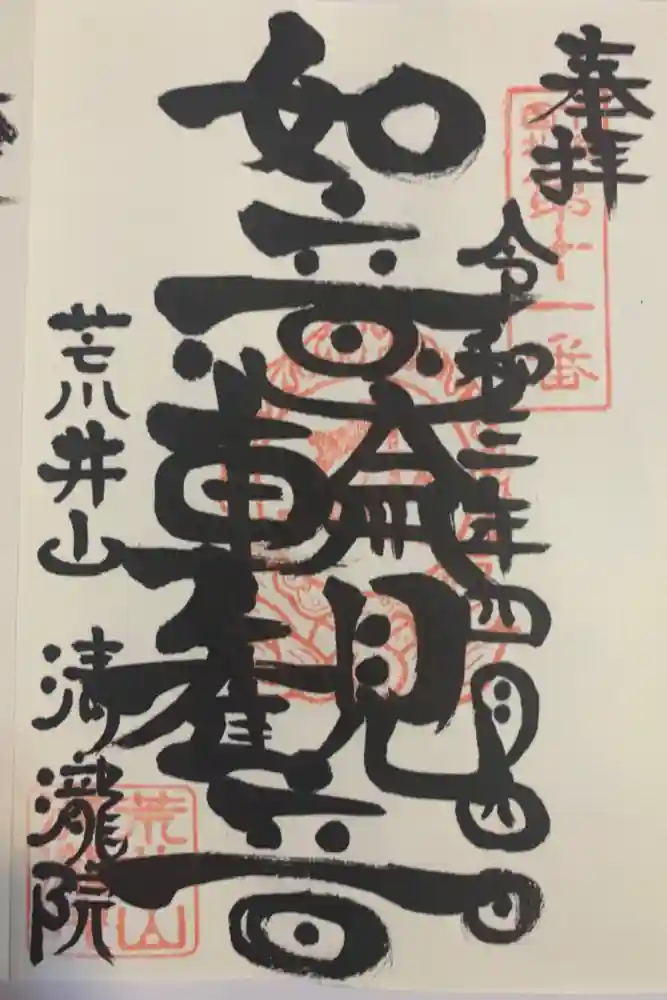 奉拝
第十一番
令和三年四月四日
如意輪観音
荒井山 清瀧院